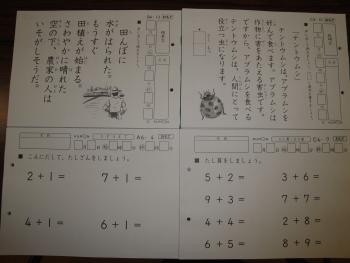 田んぼに
水がはられた。
もうすぐ
田植えが始まる。
さわやかに晴れた
空の下、農家の人は
いそがしそうだ。
「テントウムシ」
テントウムシは、アブラムシを
好んで食べます。アブラムシは
作物に害をあたえる害虫です。
ですから、アブラムシを食べる
テントウムシは、人間にとって
役立つ虫になります。
A6-4
■ こえにだして、たしざんをしましょう。
2+1=
7+1=
4+1=
6+1=
■ たし算をしましょう。
5+2=
3+6=
9+3=
7+7=
4+4=
2+8=
6+5=
8+9=